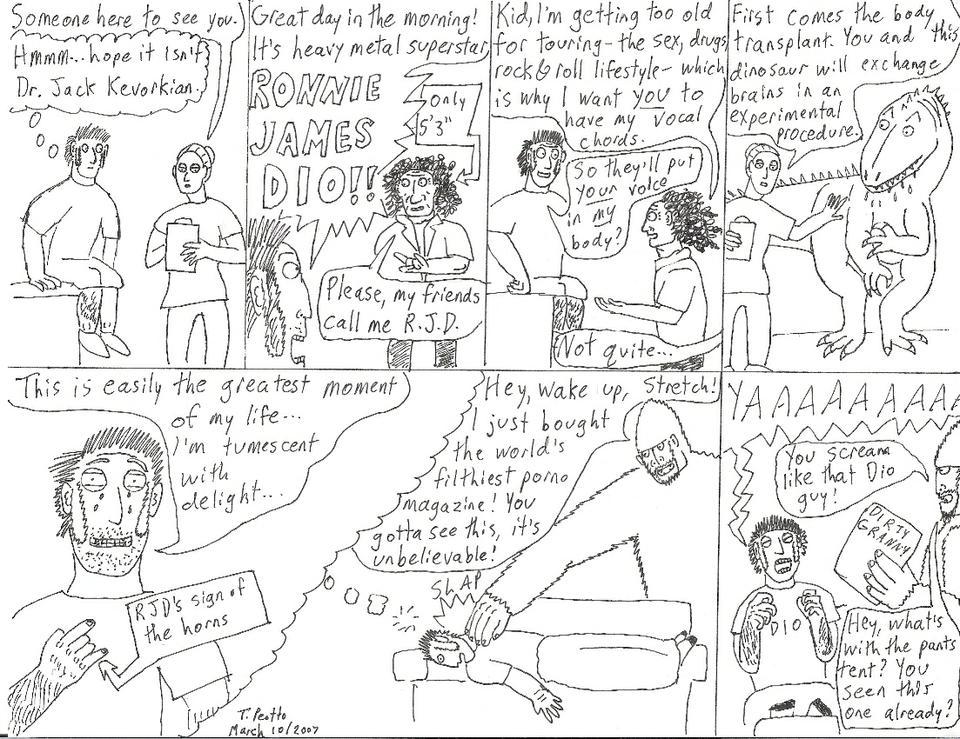 Someone here to see you.
Hmmm... hope it isn't
Dr. Jack Kevorkian.
Great day in the morning!
It's heavy metal superstar
RONNIE
JAMES
DIO!!
only
5'3"
Please, my friends
call me R.J.D.
Kid, I'm getting too old
for touring - the sex, drugs,
rock & roll lifestyle - which
is why I want you to
have my vocal
chords.
So they'll put
your voice
in my
body?
Not quite...
First comes the body
transplant. You and this
dinosaur will exchange
brains in an
experimental
procedure.
This is easily the greatest moment
of my life...
I'm tumescent
with
delight...
RJD's sign of
the horns
T. Peotto
March 10/2007
Hey, wake up, Stretch!
I just bought
the world's
filthiest porno
magazine! You
gotta see this, it's
unbelievable!
SLAP
YAAAAAAAAA
You scream
like that Dio
guy!
DIRTY
GRANNY
DIO
Hey, what's
with the pants
tent? You
seen this
one already?